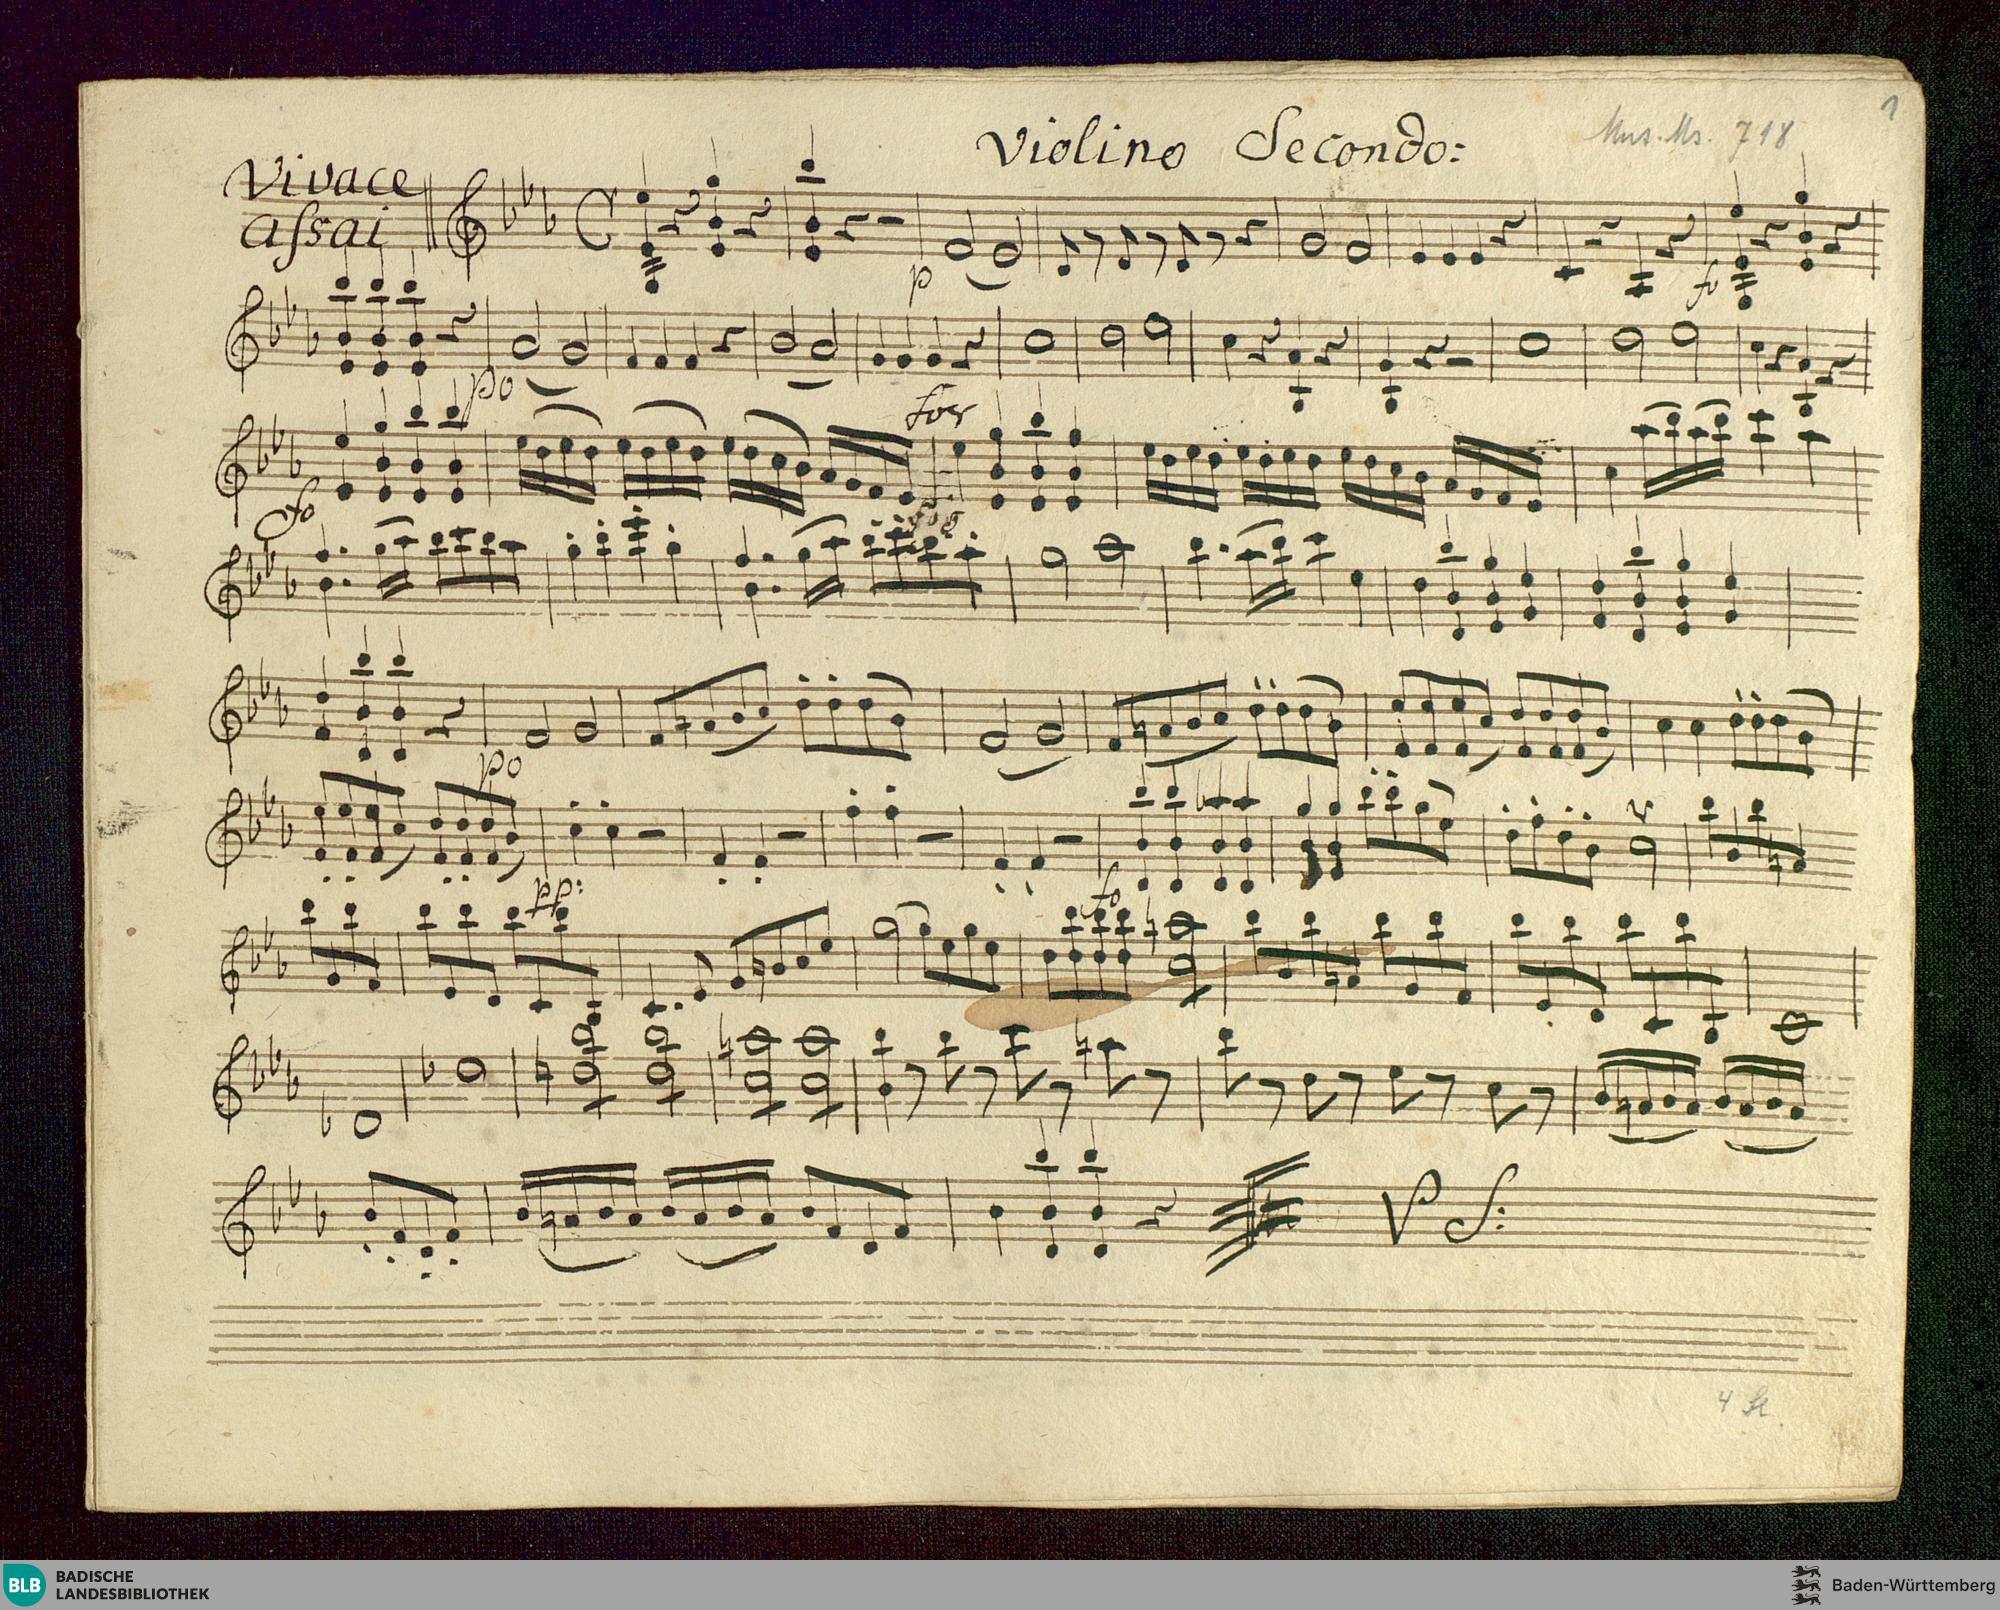 1
Mus. Ms. 718
Violino Secondo:
Vivace
assai
p
fo
po
for
fo
po
pp:
fo
V S:
4 St.
BLB BADISCHE
LANDESBIBLIOTHEK
Baden-Württemberg